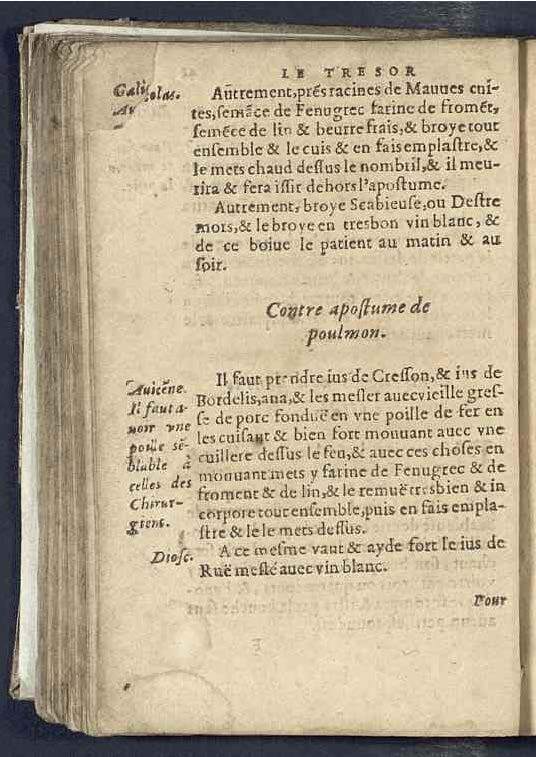 LE TRESOR
Autrement, prés racines de Mauues cui-
tes, semẽce de Fenugrec farine de fromẽt,
semẽce de lin & beurre frais, & broye tout
ensemble & le cuis & en fais emplastre, &
le mets chaud dessus le nombril, & il meu-
rira & fera issir dehors l'apostume.
Autrement, broye Scabieuse, ou Destre
mors, & le broye en tresbon vin blanc, &
de ce boiue le patient au matin & au
soir.
Contre apostume de
poulmon.
Auicẽne.
Il faut a-
uoir vne
poille sẽ-
blable à
celles des
Chirur-
giens.
Il faut prendre ius de Cresson, & ius de
Bordelis, ana, & les mesler auec vieille gres-
se de porc fonduë en vne poille de fer en
les cuisant & bien fort mouuant auec vne
cuillere dessus le feu, & auec ces choses en
mouuant mets y farine de Fenugrec & de
froment & de lin, & le remuë tresbien & in
corpore tout ensemble, puis en fais empla-
stre & le le mets dessus.
Diosc.
A ce mesme vaut & ayde fort le ius de
Ruë meslé auec vin blanc.
Pour